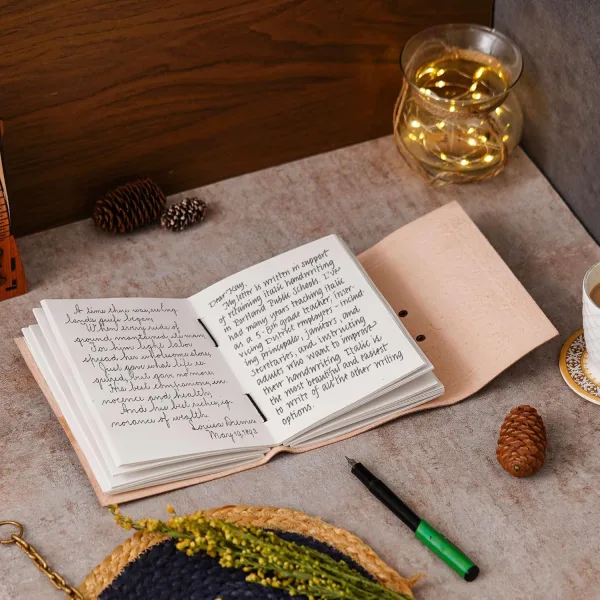 A time there was, ere
lands griefs began,
When every rood of
ground maintained its man;
For him light labor
spread her wholesome store,
Just gave what life re-
quired, but gave no more:
His best companions, in-
nocence and health;
And his best riches, ig-
norance of wealth.
Louisa
May 19, 1893
Dear Kay,
My letter is written in support
of retaining italic handwriting
in Portland Public Schools. I've
had many years teaching italic
as a 5-8th grade teacher, instr-
vicing District employees - includ
ing principals, janitors, and
secretaries, and instructing
adults who want to improve
their handwriting. Italic is
the most beautiful and easiest
to write of all the other writing
options.